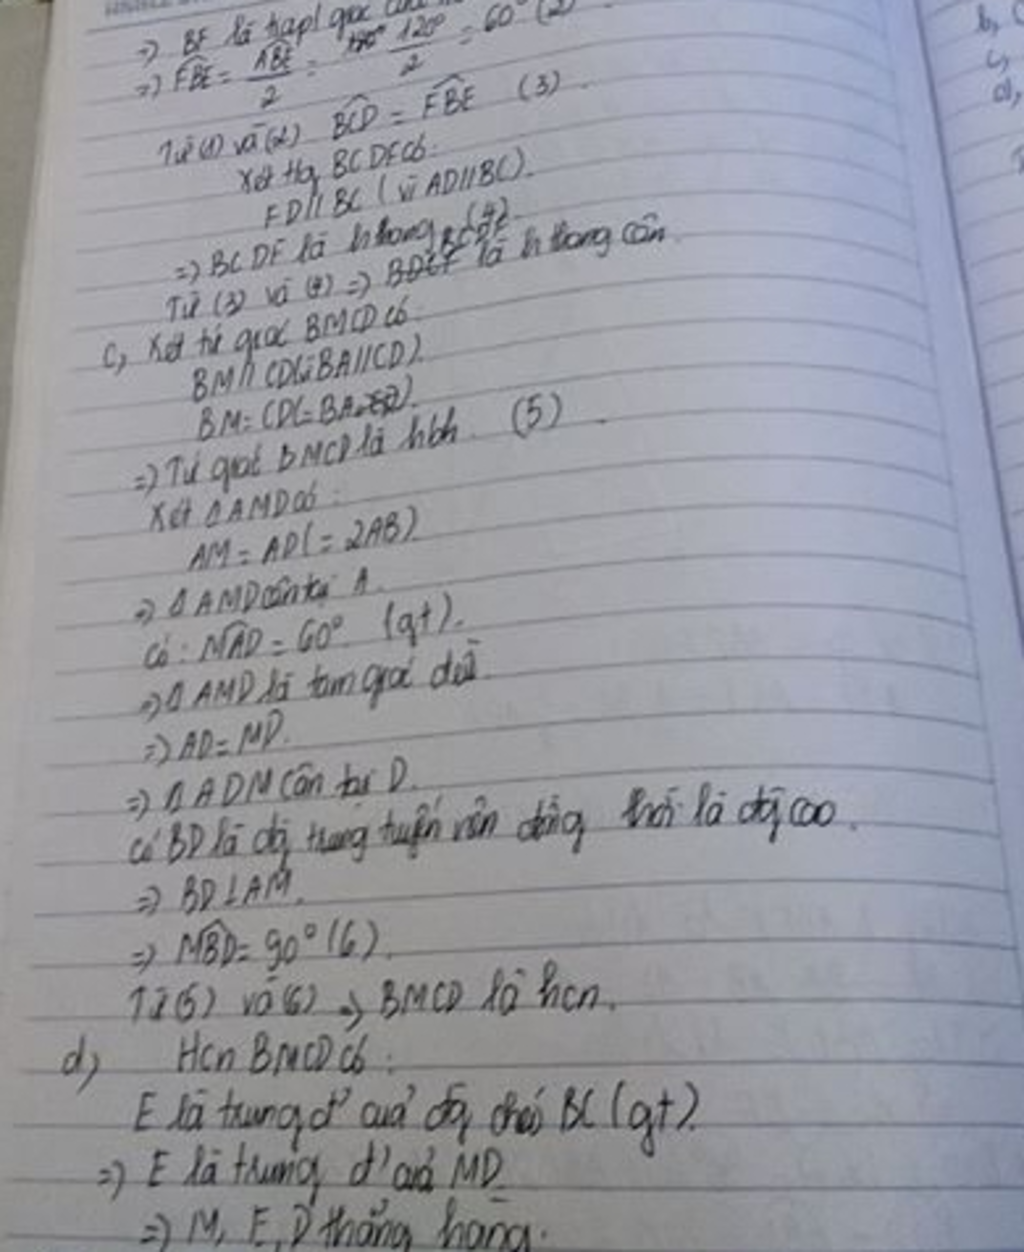 =) BF là
=) FBE = ABE/2 = 120°/2 = 60° (2)
Từ (1) và (2) BCD = FBE (3).
Xét tg BCDF có:
FD // BC (vì AD // BC).
=) BCDF là hthang (4)
Từ (3) và (4) =) BCDF là hthang cân.
c, Xét tứ giác BMCD có:
BM // CD (vì BA // CD).
BM = CD (= BA
=) Tứ giác BMCD là hbh. (5)
Xét Δ AMD có:
AM = AD (= 2AB)
=) Δ AMD cân tại A.
Có: MAD = 60° (gt).
=) Δ AMD là tam giác đều
=) AD = MD.
=) Δ ADM cân tại D.
có BD là đg trung tuyến nên đồng thời là đg cao.
=) BD ⊥ AM.
=) MBD = 90° (6).
Từ (5) và (6) =) BMCD là hcn.
d, Hcn BMCD có:
E là trung đ' của đg chéo BC (gt).
=) E là trung đ' của MD
=) M, E, D thẳng hàng.
b,
c,
d,